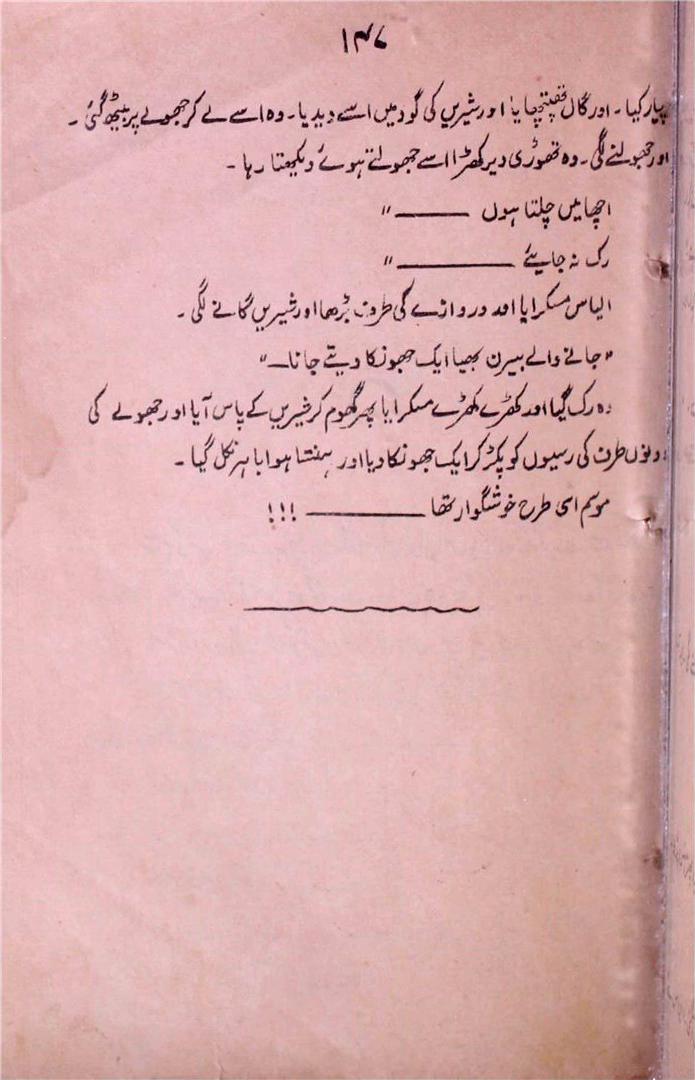 ۱۴۷
پیار کیا ۔ اور گال تھپتھپایا اور شیریں کی گود میں اسے دیدیا ۔ وہ اسے لے کر جھولے پر بیٹھ گئی ۔
اور جھولنے لگی ۔ وہ تھوڑی دیر کھڑا اسے جھولتے ہوئے دیکھتا رہا ۔
اچھا میں چلتا ہوں ـــــــ "
رک نہ جایئے ـــــــــــــ "
الیاس مسکرایا اور دروازے کی طرف بڑھا اور شیریں گانے لگی ۔
" جانے والے بیرن بھیا ایک جھونکا دیتے جانا ــ "
وہ رک گیا اور کھڑے کھڑے مسکرایا پھر گھوم کر شیریں کے پاس آیا اور جھولے کی
دونوں طرف کی رسیوں کو پکڑ کر ایک جھونکا دیا اور ہنستا ہوا باہر نکل گیا ۔
موسم اسی طرح خوشگوار تھا ـــــــــــــ !!!